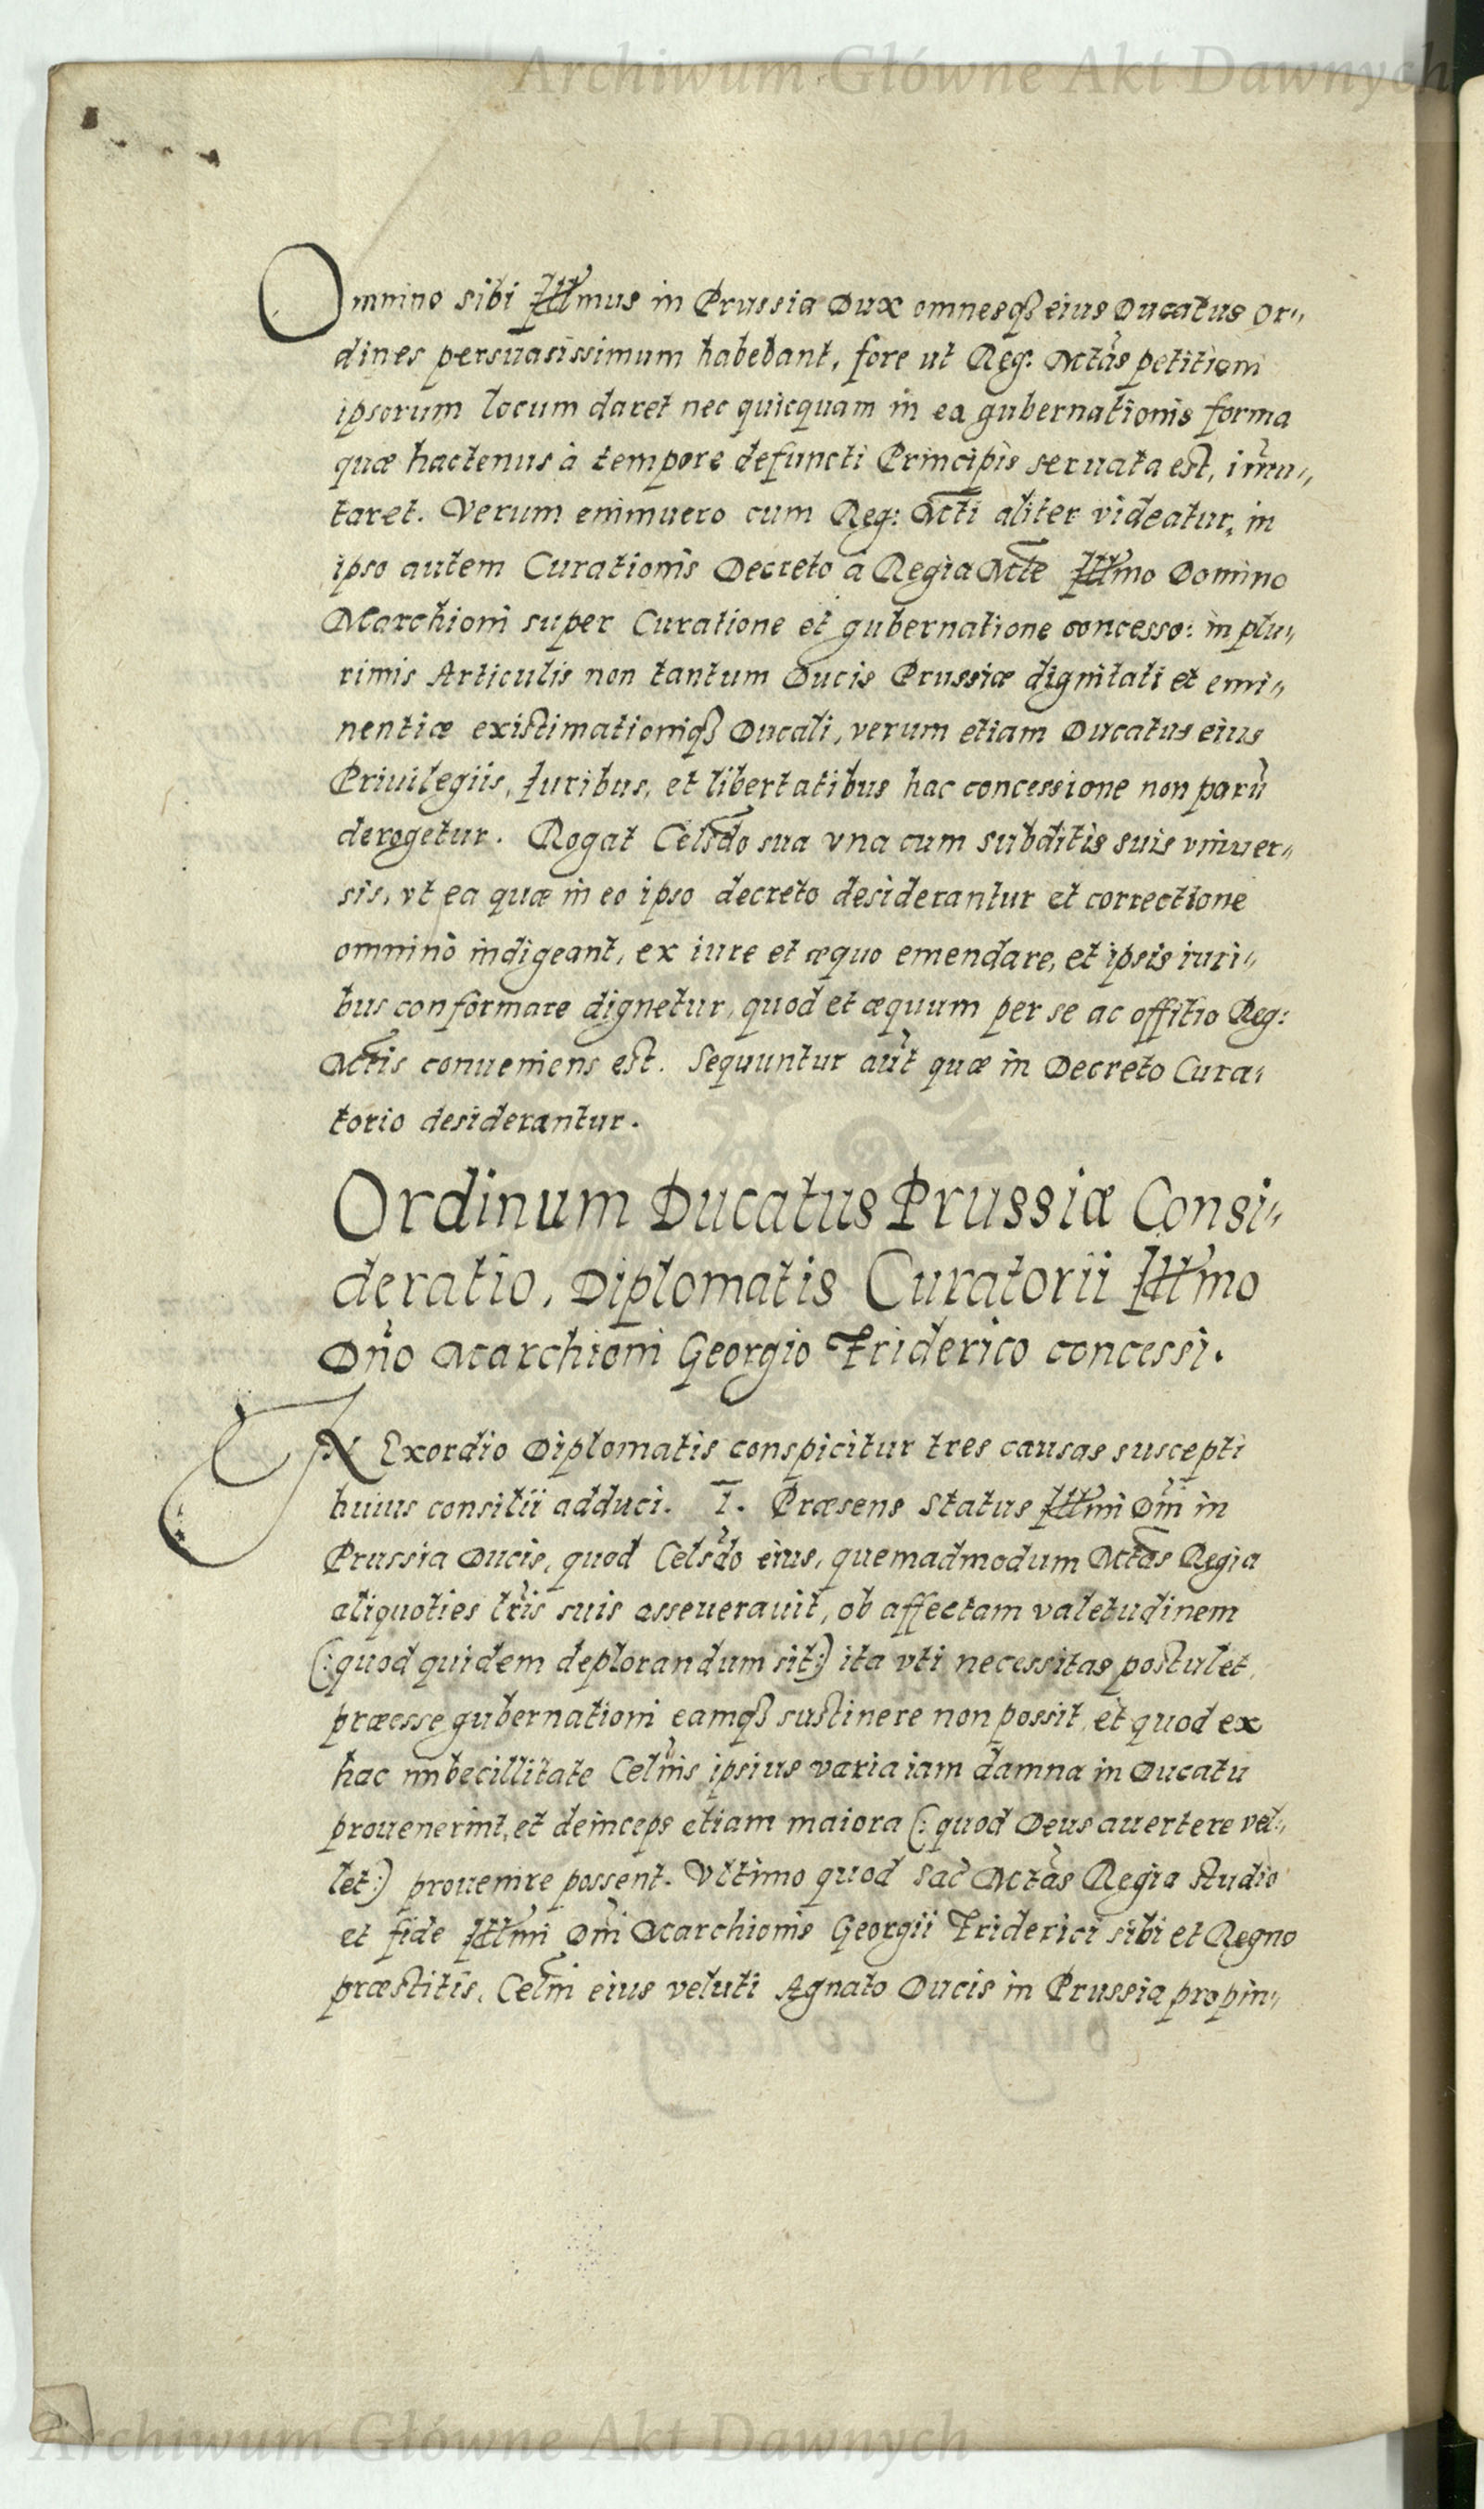 Archiwum Główne Akt Dawnych
Omnino sibi Illmus in Prussia Dux omnesq₃ eius Ducatus Or„
dines persuasissimum habebant, fore ut Reg: Mtas petitioni
ipsorum locum daret nec quicquam in ea gubernationis forma
quæ hactenus à tempore defuncti Principis seruata est, im̃u„
taret. Verum enimuero cum Reg: Mti aliter videatur, in
ipso autem Curationis Decreto a Regia Mte Illmo Domino
Marchioni super Curatione et gubernatione concesso: in plu„
rimis Articulis non tantum Ducis Prussiæ dignitati et emi„
nentiæ existimationiq₃ Ducali, verum etiam Ducatus eius
Priuilegiis, Iuribus, et libertatibus hac concessione non parũ
derogetur. Rogat Celsdo sua vna cum subditis suis vniuer„
sis, vt ea quæ in eo ipso decreto desiderantur et correctione
omnino indigeant, ex iure et æquo emendare, et ipsis iuri„
bus conformare dignetur, quod et æquum per se ac offitio Reg:
Mtis conueniens est. Sequuntur aũt quæ in Decreto Cura„
torio desiderantur.
Ordinum Ducatus Prussiæ Consi„
deratio, Diplomatis Curatorii Illmo
Dño Marchioni Georgio Friderico concessi.
IN Exordio Diplomatis conspicitur tres causas suscepti
huius consilii adduci. I. Præsens Status Illmi Dñi in
Prussia Ducis, quod Celsdo eius, quemadmodum Mtas Regia
aliquoties lr̃is suis asseuerauit, ob affectam valetudinem
(: quod quidem deplorandum sit :) ita vti necessitas postulet,
præesse gubernationi eamq₃ sustinere non possit, et quod ex
hac imbecillitate Celnis ipsius varia iam damna in Ducatu
prouenerint, et deinceps etiam maiora (: quod Deus auertere vel„
let :) prouenire possent. Vltimo quod Sac Mtas Regia studio
et fide Illmi Dñi Marchionis Georgii Friderici sibi et Regno
præstitis, Celni eius veluti Agnato Ducis in Prussia propin„
Archiwum Główne Akt Dawnych